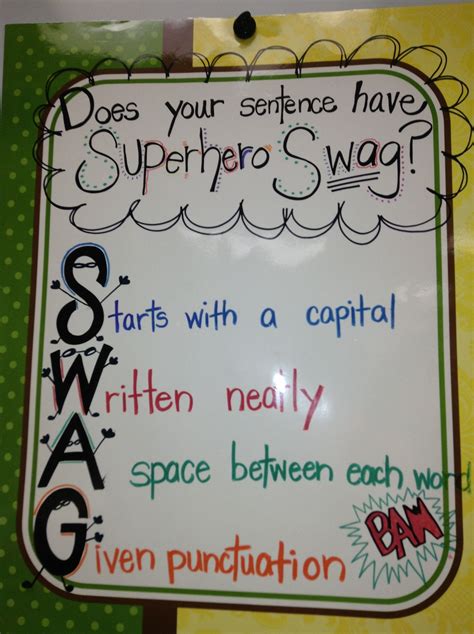 Does your sentence have
Superhero Swag?
Starts with a capital
Written neatly
A space between each word
Given punctuation
BAM